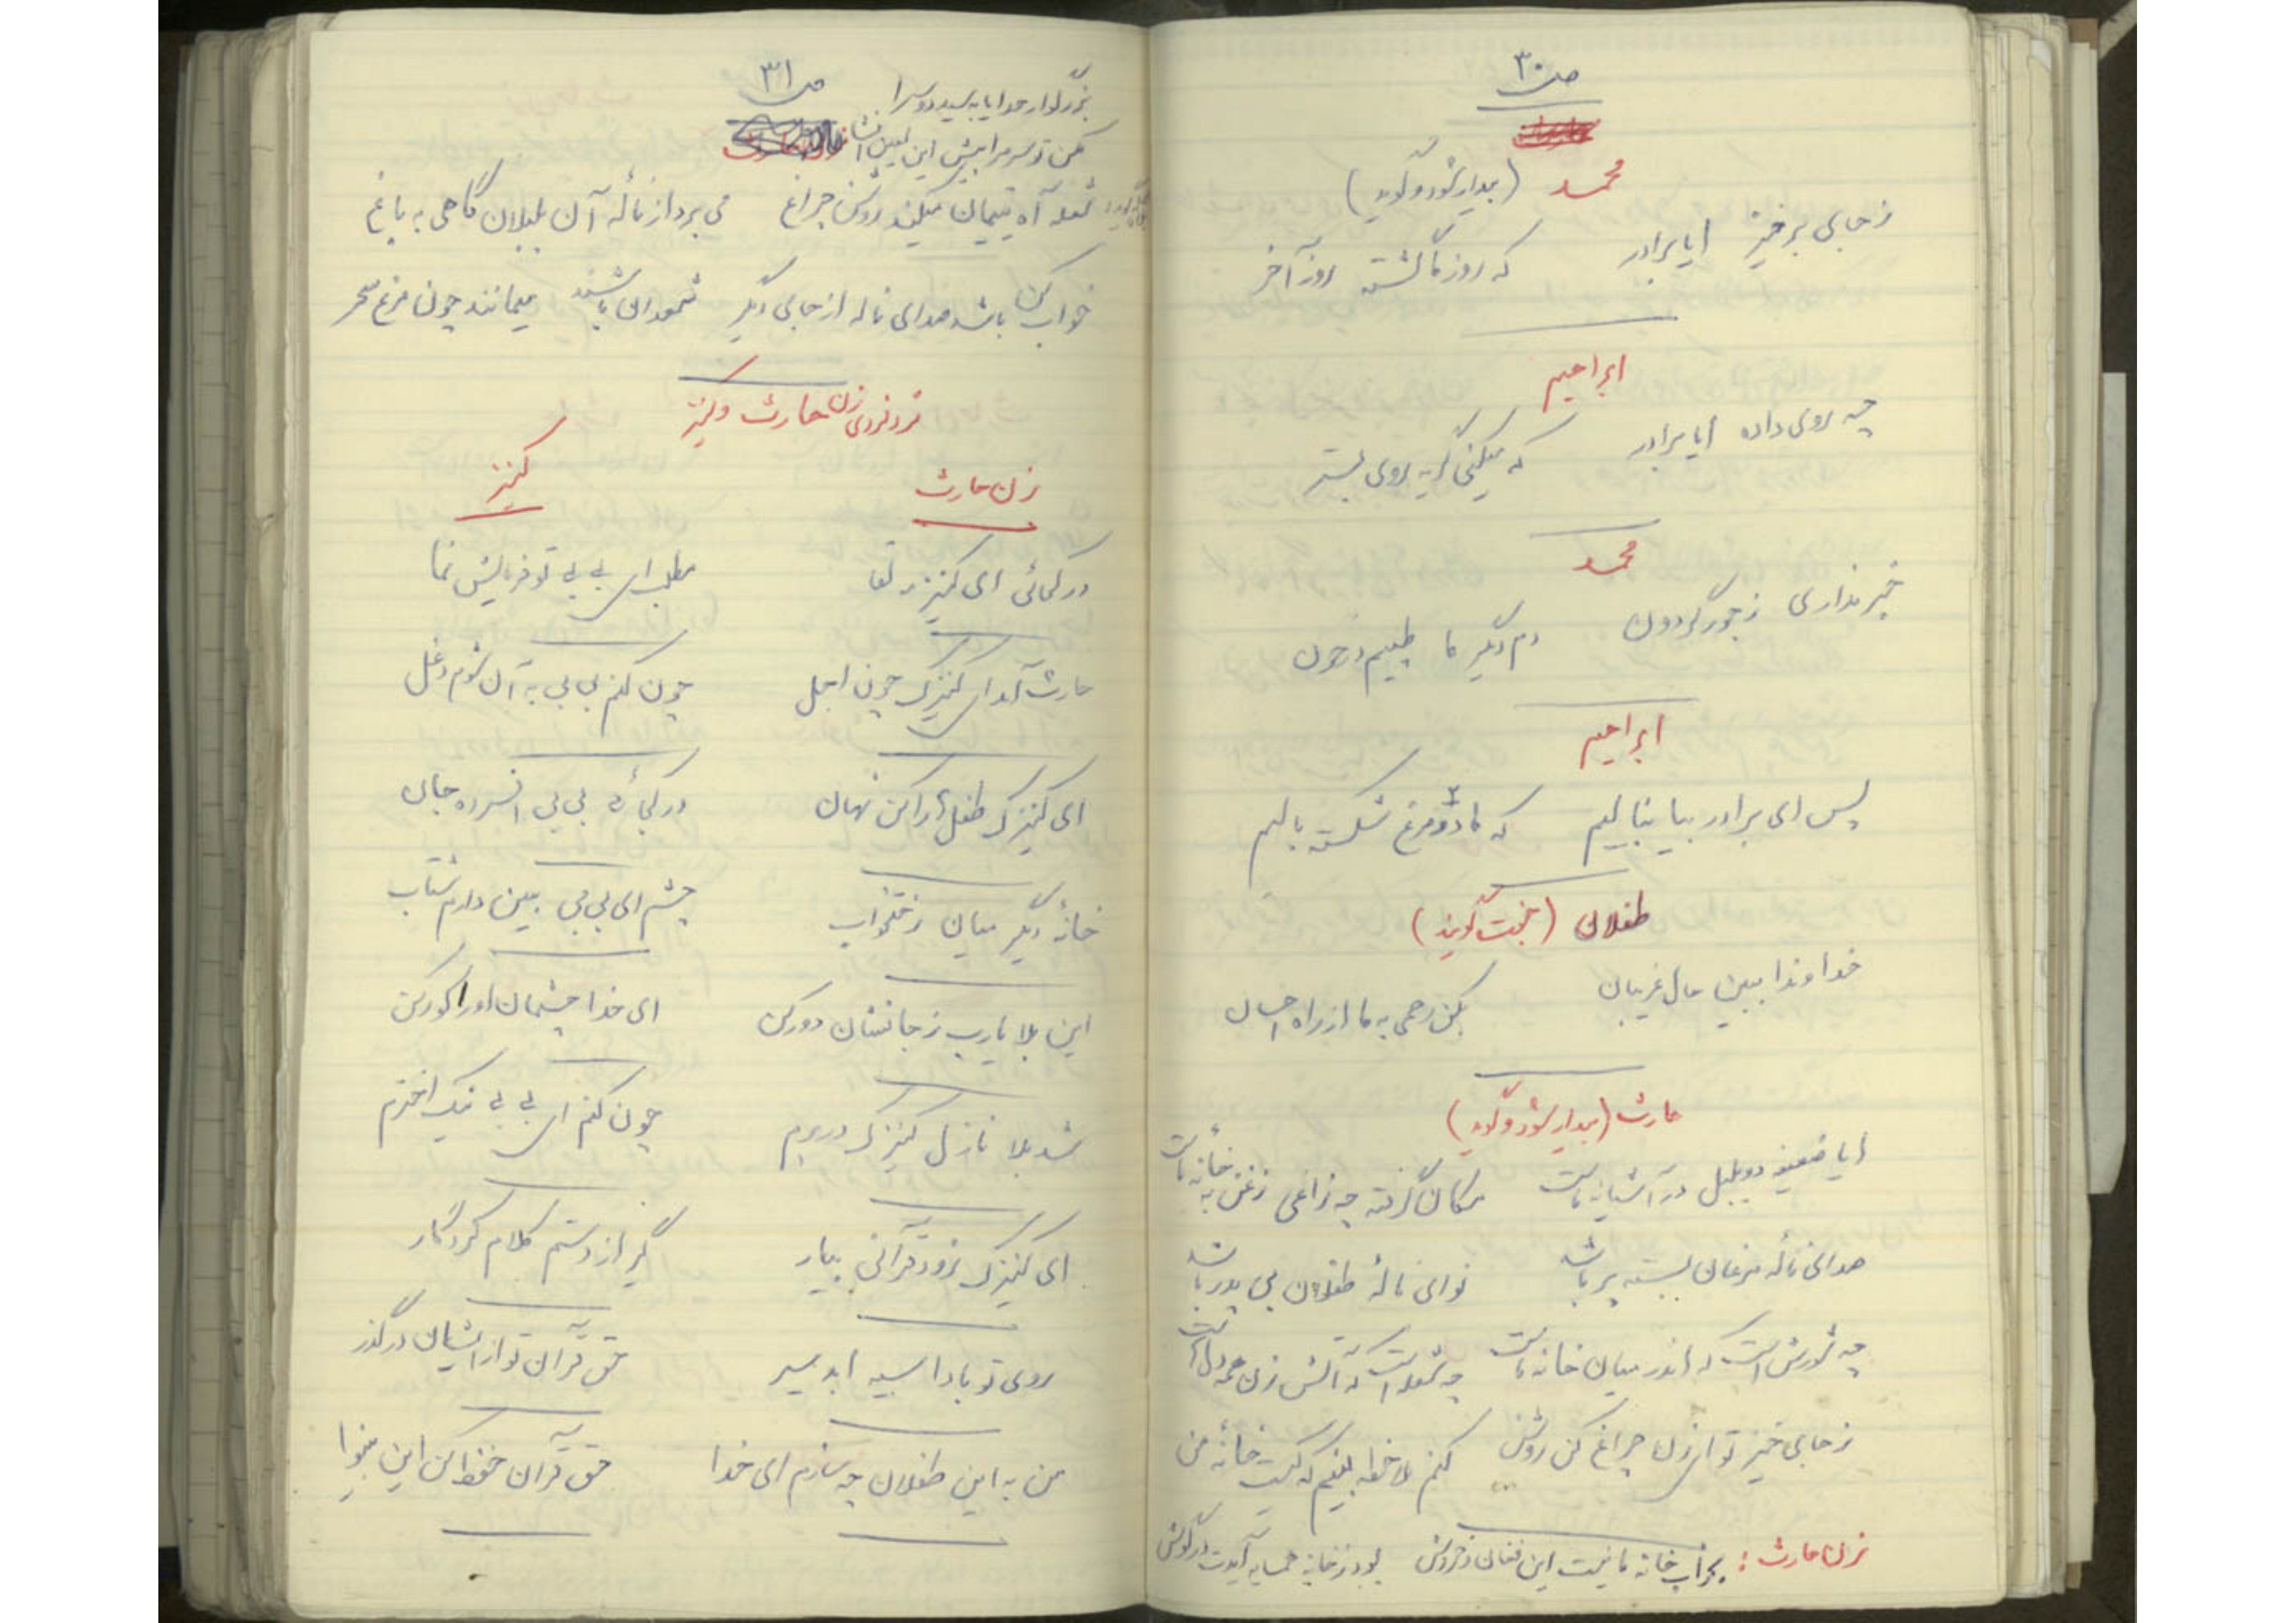 ص ۳۰
محمد (بیدار شود و گوید)
زجای برخیز ایا برادر که روز ما گشته روز آخر
ابراهیم
چه روی داده ایا برادر که میکنی گریه روی بستر
محمد
خبر نداری ز جور گردون دم دیگر ما طپیم در خون
ابراهیم
پس ای برادر بیا بنالیم که ما دو مرغ شکسته بالیم
طفلان (بخت گویند)
خداوندا ببین حال غریبان بکن رحمی به ما از راه احسان
حارث (بیدار شود و گوید)
ایا ضعیفه دو بلبل در آشیانه ماست مکان گرفته چه زاغی زغن به خانه ماست
صدای نالهٔ مرغان بسته پر باشد نوای نالهٔ طفلان بی پدر باشد
چه شورش است که اندر میان خانه ماست چه شعله است که آتش زن همه دلهاست
زجای خیز تو ای زن چراغ کن روشن کنم ملاحظه بینم که کیست خانهٔ من
زن حارث: بخواب خانه ما نیست این فغان و خروش بود ز خانه همسایه آیدت در گوش
ص ۳۱
بزرگوار خدایا به سید دو سرا
مکن تو سر مرا پیش این لعین افشا
شعله آه یتیمان میکند روشن چراغ می برد از نالهٔ آن بلبلان گاهی به باغ
خواب کن باشد صدای ناله از جای دگر شعودای باشند میمانند چون مرغ سحر
فرد فردی زن حارث و کنیز
زن حارث کنیز
در کجائی ای کنیز مه لقا مطلب ای بی بی تو فرمایش نما
حارث آمد ای کنیزک چون اجل چون کنم بی بی به آن شوم دغل
ای کنیزک طفلها را کن نهان در کجا بی بی افسرده جان
خانهٔ دیگر میان رختخواب چشم ای بی بی ببین دارم شتاب
این بلا یارب ز جانشان دور کن ای خدا چشمان او را کور کن
شد بلا نازل کنیزک در برم چون کنم ای بی بی نیک اخترم
ای کنیزک زود قرآنی بیار گیر از دستم کلام کردگار
روی تو بادا سیه ای بد سیر حق قرآن تو از ایشان در گذر
من به این طفلان چه سازم ای خدا حق قرآن حفظ کن این بینوا